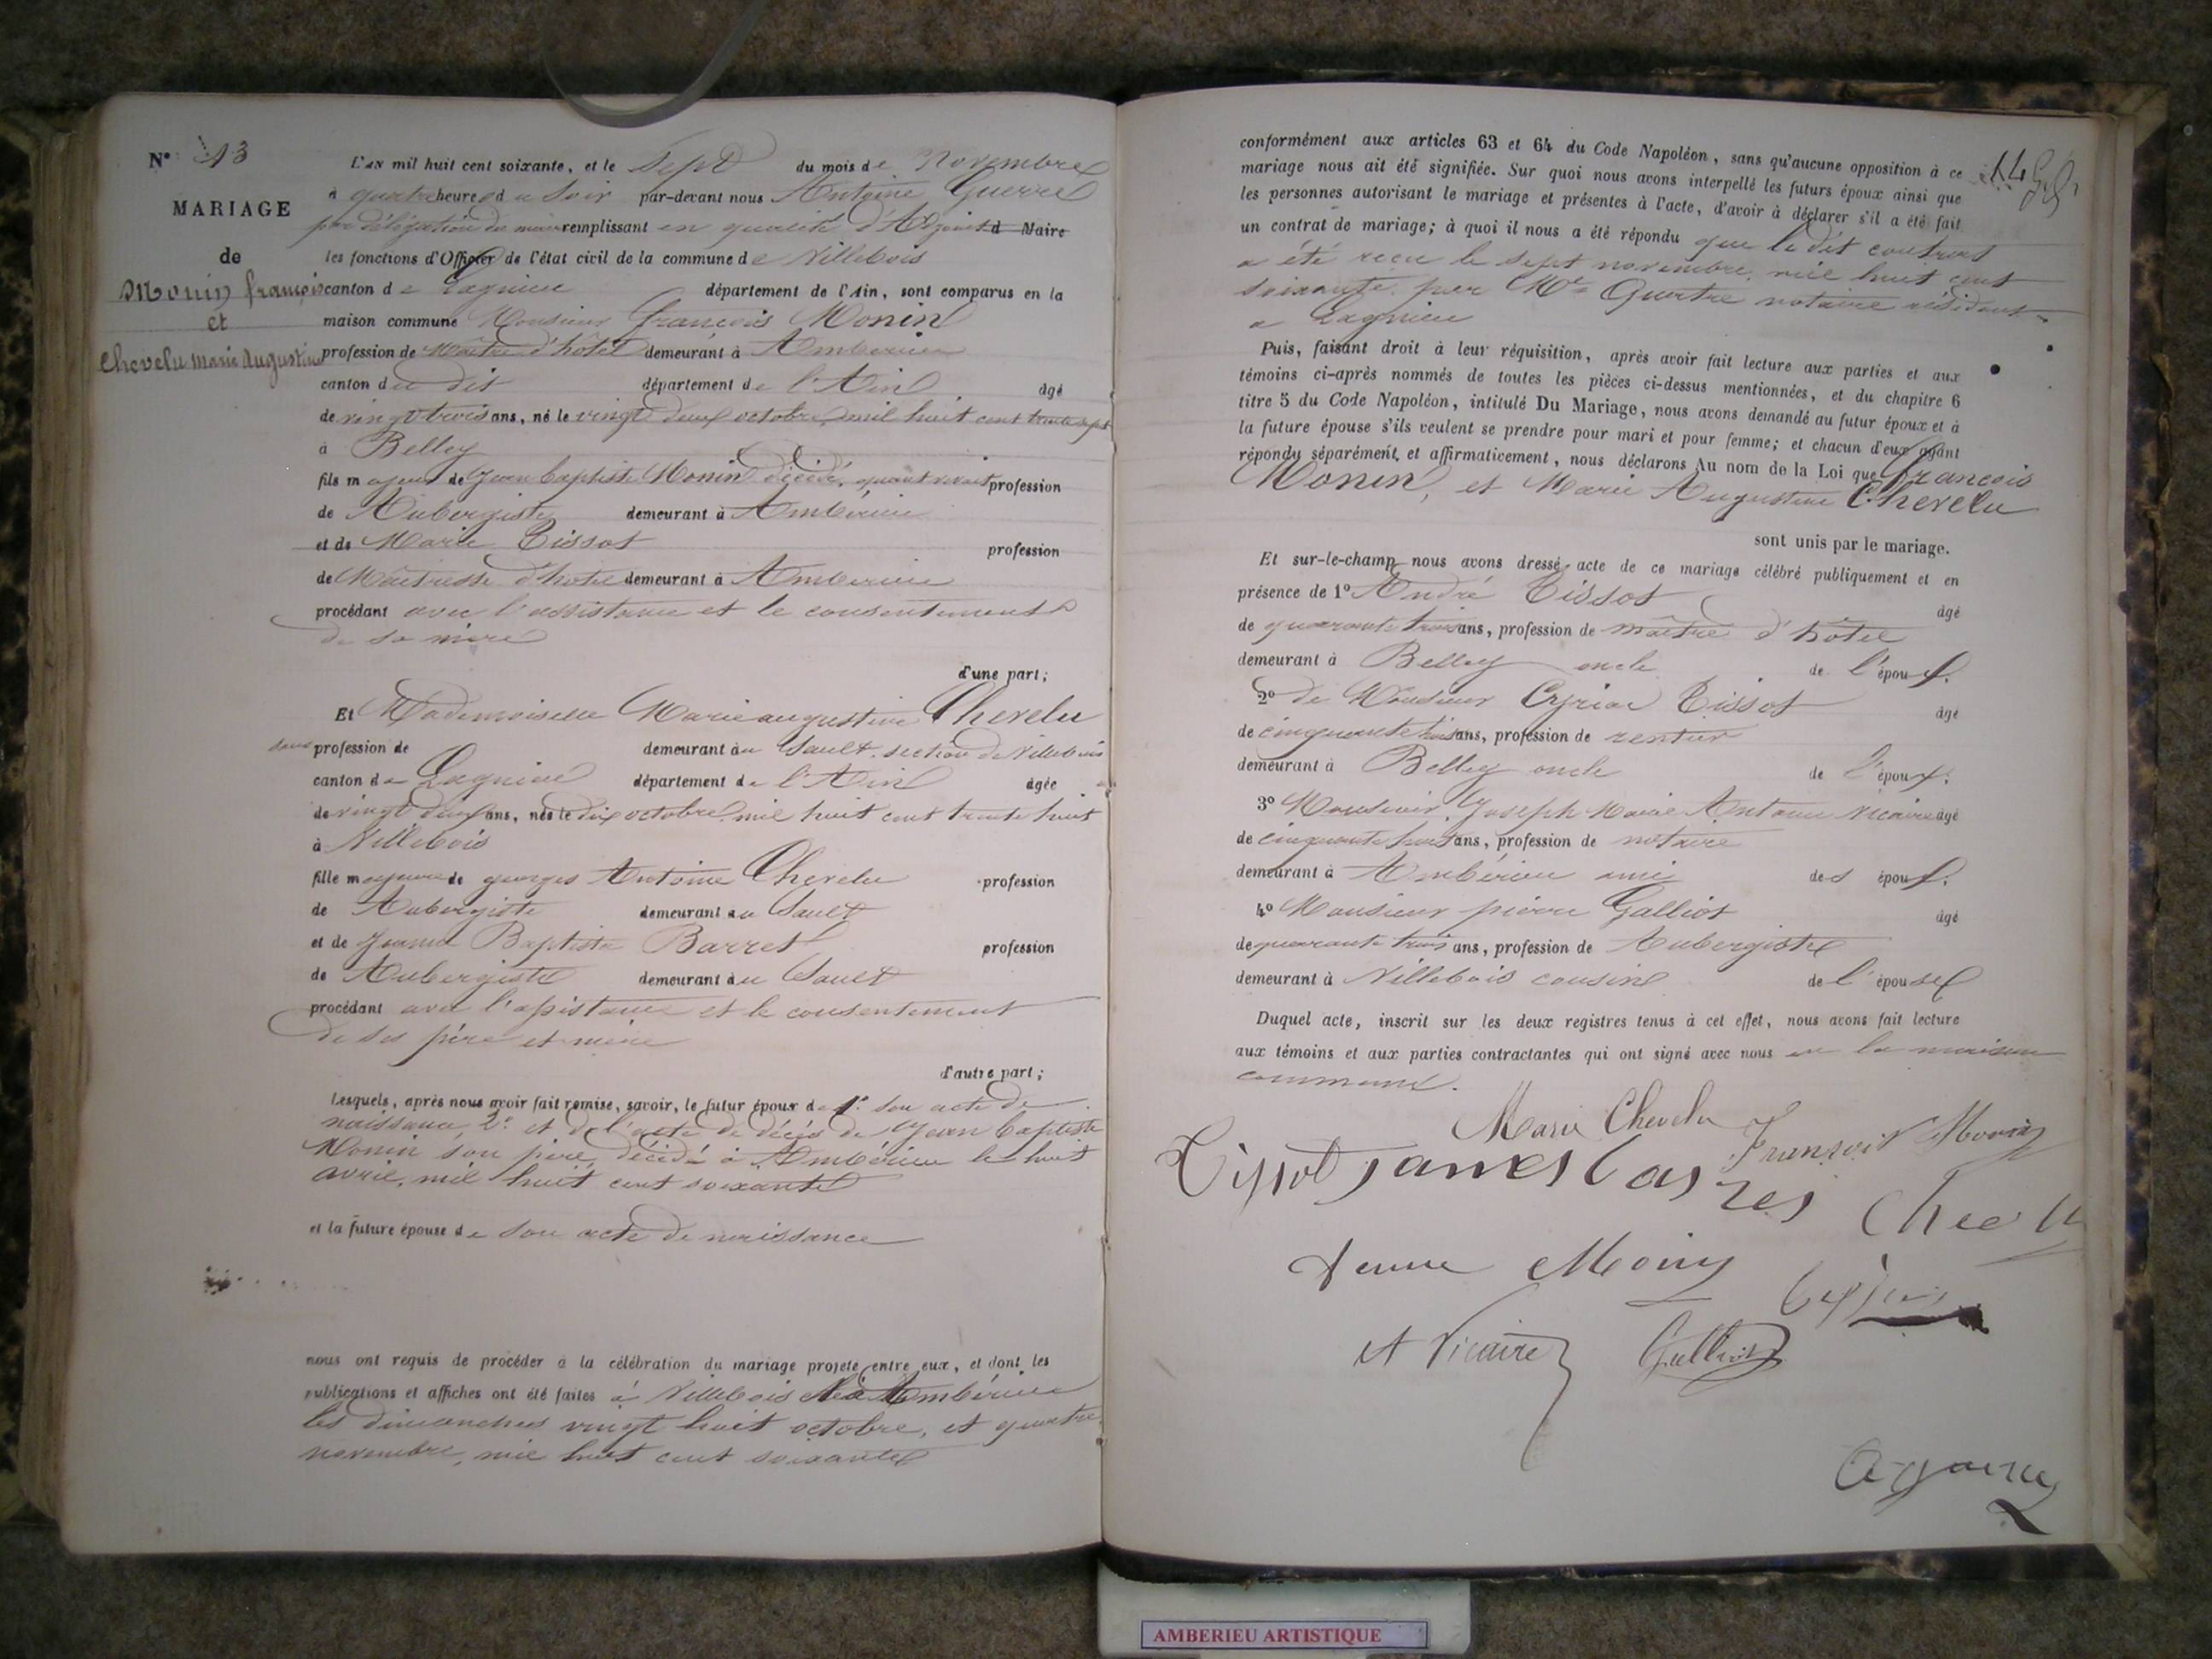 N° 13
MARIAGE
de
Monin françois
et
Chevelu marie Augustine
L'AN mil huit cent soixante, et le Sept du mois de Novembre
à quatre heures du Soir par-devant nous Antoine Guerre
par délégation du maire remplissant en qualité d'Adjoint d Maire
les fonctions d'Officier de l'état civil de la commune de Villebois
canton de Lagnieu département de l'Ain, sont comparus en la
maison commune Monsieur françois Monin
profession de Maître d'hôtel demeurant à Amberieu
canton du dit département de l'Ain âgé
de vingt trois ans, né le vingt deux octobre mil huit cent trente sept
à Belley
fils majeur de Jean Baptiste Monin décédé, quant vivait profession
de Aubergiste demeurant à Ambérieu
et de Marie Tissot profession
de Maîtresse d'hotel demeurant à Amberieu
procédant avec l'assistance et le consentement
de sa mere
d'une part;
Et Mademoiselle Marie augustine Chevelu
sans profession de demeurant au Sault, section de Villebois
canton de Lagnieu département de l'Ain âgée
de vingt deux ans, née le dix octobre mil huit cent trente huit
à Villebois
fille majeure de georges Antoine Chevelu profession
de Aubergiste demeurant au Sault
et de Jeanne Baptiste Barret profession
de Aubergiste demeurant au Sault
procédant avec l'assistance et le consentement
de ses père et mère
d'autre part;
Lesquels, après nous avoir fait remise, savoir, le futur époux de 1° son acte de
naissance, 2° et de l'acte de décès de Jean Baptiste
Monin son père, décédé à Ambérieu le huit
avril, mil huit cent soixante
et la future épouse de son acte de naissance
nous ont requis de procéder à la célébration du mariage projeté entre eux, et dont les
publications et affiches ont été faites à Villebois et à Ambérieu
les dimanches vingt huit octobre, et quatre
novembre, mil huit cent soixante
conformément aux articles 63 et 64 du Code Napoléon, sans qu'aucune opposition à ce
mariage nous ait été signifiée. Sur quoi nous avons interpellé les futurs époux ainsi que
les personnes autorisant le mariage et présentes à l'acte, d'avoir à déclarer s'il a été fait
un contrat de mariage; à quoi il nous a été répondu que le dit contrat
a été recu le sept novembre, mil huit cent
soixante par Me Quertre notaire résidant
a Lagnieu
Puis, faisant droit à leur réquisition, après avoir fait lecture aux parties et aux
témoins ci-après nommés de toutes les pièces ci-dessus mentionnées, et du chapitre 6
titre 5 du Code Napoléon, intitulé Du Mariage, nous avons demandé au futur époux et à
la future épouse s'ils veulent se prendre pour mari et pour femme; et chacun d'eux ayant
répondu séparément et affirmativement, nous déclarons Au nom de la Loi que francois
Monin, et Marie Augustine Chevelu
sont unis par le mariage.
Et sur-le-champ nous avons dressé acte de ce mariage célébré publiquement et en
présence de 1° André Tissot âgé
de quarante trois ans, profession de maître d'hôtel
demeurant à Belley oncle de l'époux.
2° de Monsieur Cyriac Tissot âgé
de cinquante ans, profession de rentier
demeurant à Belley oncle de l'époux.
3° Monsieur Joseph Marie Antoine Vicaire âgé
de cinquante huit ans, profession de notaire
demeurant à Ambérieu ami des époux.
4° Monsieur pierre Galliot âgé
de quarante trois ans, profession de Aubergiste
demeurant à Villebois cousin de l'épouse
Duquel acte, inscrit sur les deux registres tenus à cet effet, nous avons fait lecture
aux témoins et aux parties contractantes qui ont signé avec nous en la maison
commune.
Marie Chevelu
François Monin
Tissot
veuve Monin
A Vicaire
Galliot
AMBERIEU ARTISTIQUE